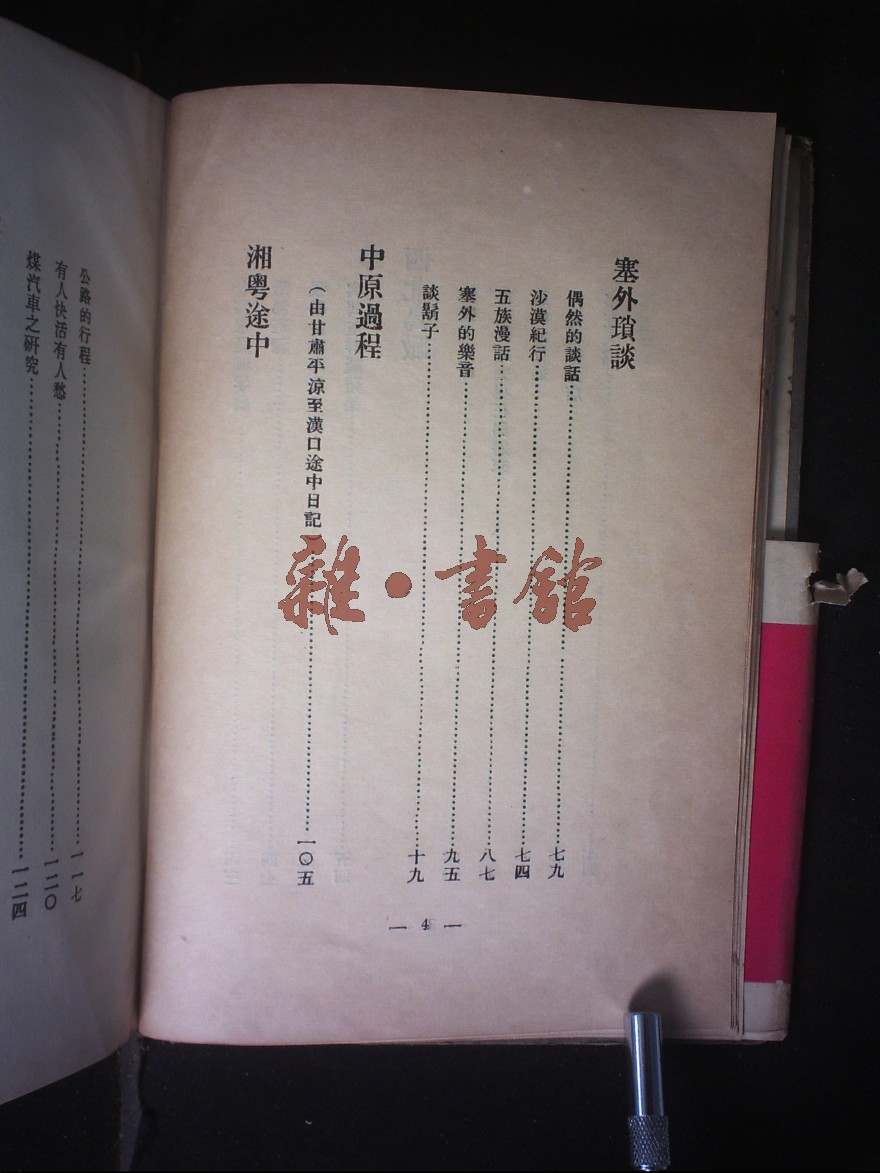 塞外瑣談
偶然的談話…………七九
沙漠紀行…………七四
五族漫話…………八七
塞外的樂音…………九五
談鬍子…………十九
中原過程
（由甘肅平涼至漢口途中日記）…………一〇五
湘粤途中
— 4 —
公路的行程…………一一七
有人快活有人愁…………一二〇
煤汽車之研究…………一二四
雜·書館